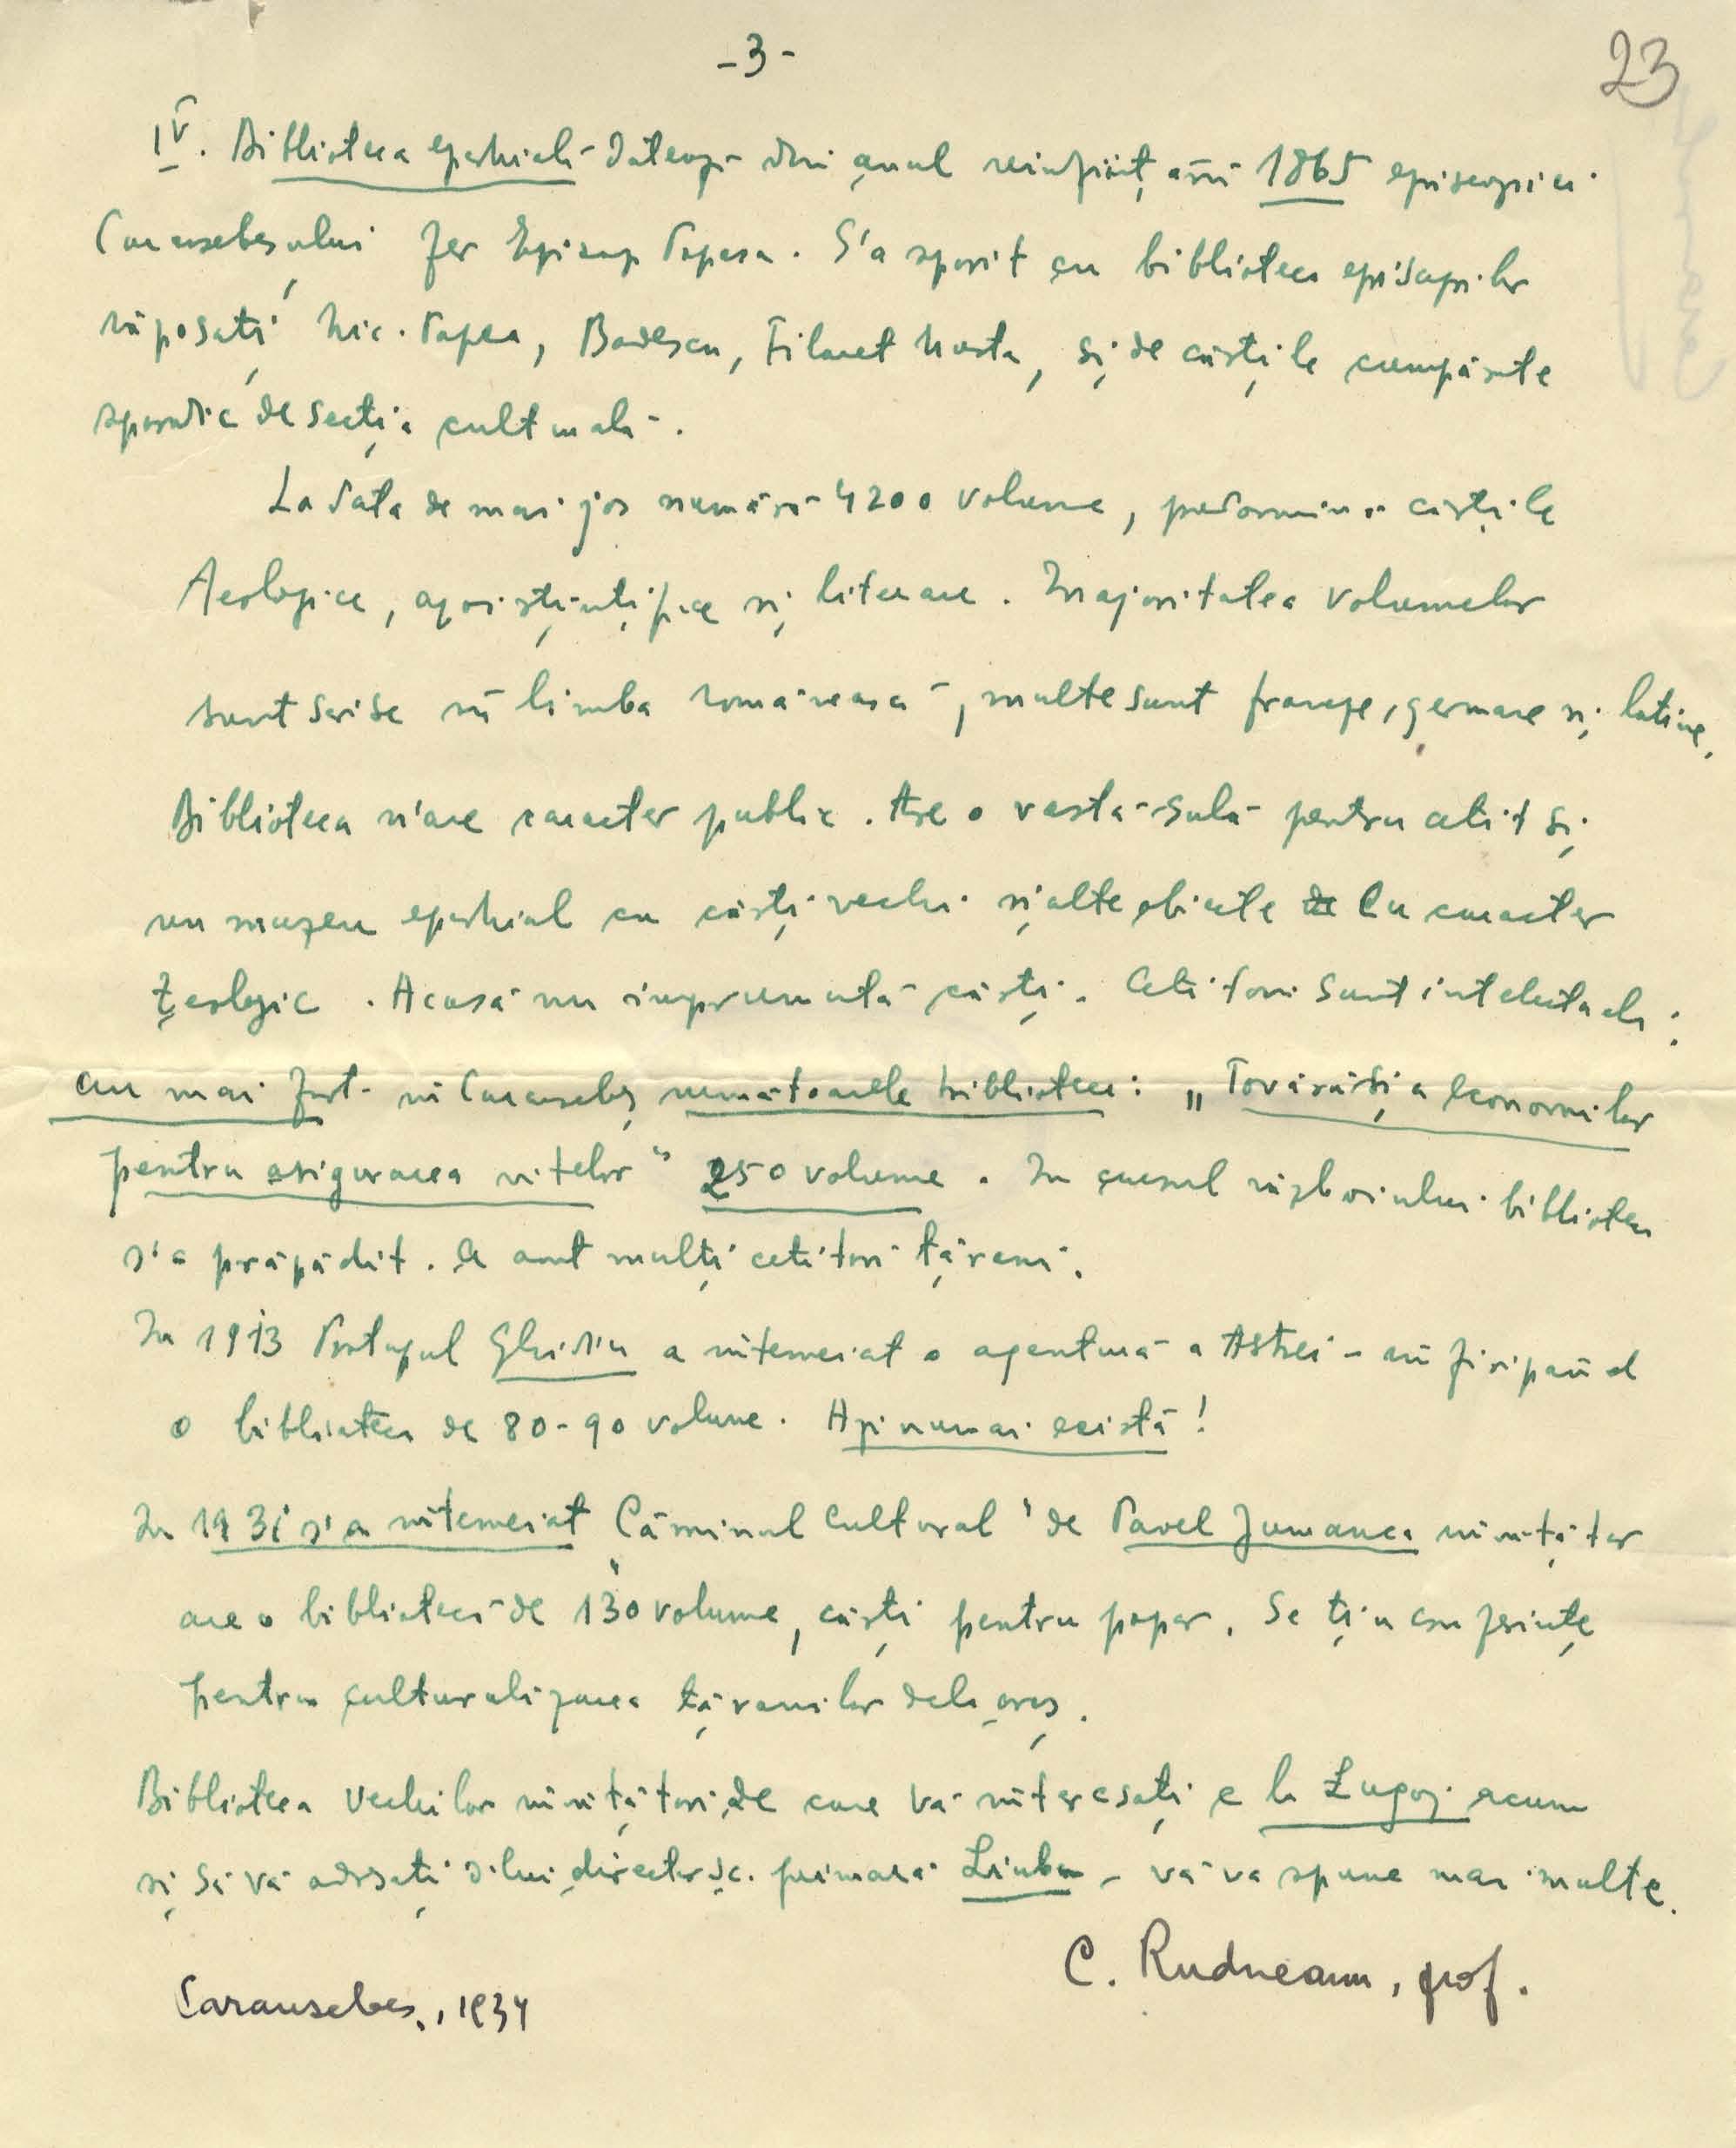 -3-
23
IV. Biblioteca eparhială datează din anul reînființării 1865 episcopiei
Caransebeșului fer Episcop Popasu. S'a sporit cu biblioteca episcopilor
răposați Nic. Popea, Badescu, Filaret Musta, și de cărțile cumpărate
sporadic de secția culturală.
La data de mai jos numără 4200 volume, predomină cărțile
teologice, apoi științifice și literare. Majoritatea volumelor
sunt scrise în limba românească, multe sunt franceze, germane și latine,
Biblioteca n'are caracter public. Are o vastă sală pentru cetit și
un muzeu eparhial cu cărți vechi și alte obiecte cu caracter
teologic. Acasă nu împrumută cărți. Cetitorii sunt intelectuali;
au mai fost în Caransebeș următoarele biblioteci: „Tovărășia economilor
pentru asigurarea vitelor" 250 volume. In cursul războiului biblioteca
s'a prăpădit. A avut mulți cetitori țărani.
In 1913 Protopopul Ghidiu a întemeiat o agentură a Astrei - înfiripând
o bibliotecă de 80-90 volume. Azi nu mai există!
In 1931 s'a întemeiat „Căminul Cultural" de Pavel Jumanca învățător
are o bibliotecă de 130 volume, cărți pentru popor. Se țin conferințe
pentru culturalizarea țăranilor dela oraș.
Biblioteca vechilor învățători de care vă interesați e la Lugoj acum
și să vă adresați d-lui director șc. primară Liuba - vă va spune mai multe.
C. Rudneanu, prof.
Caransebeș, 1934